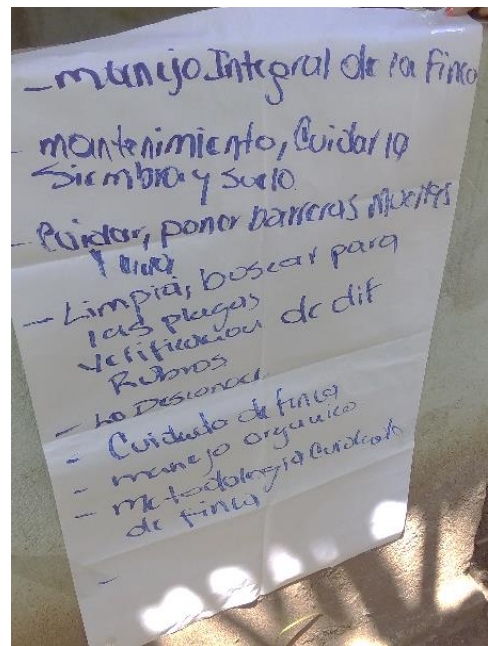 - manejo Integral de la finca
- mantenimiento, Cuidar la
Siembra y suelo
- Cuidar, poner barreras Muertas
y vivas
- Limpia, buscar para
las plagas
Verificacion de dif
Rubros
- Lo Desconoce
- Cuidado de finca
- manejo organico
- metodologia Cuidado
de finca
-